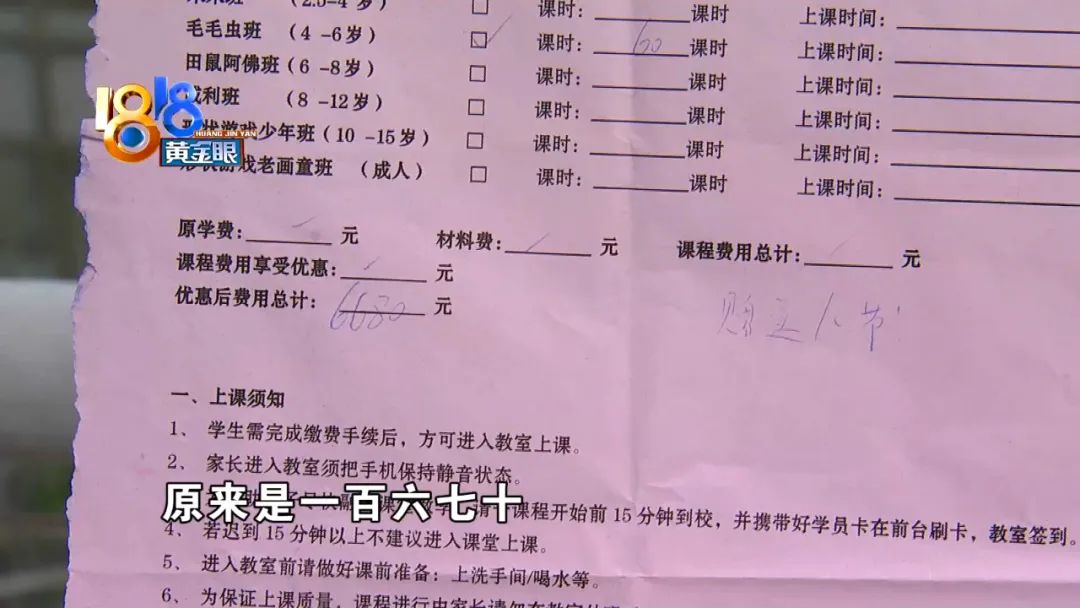 (2.5-4 岁) □ 课时：课时 上课时间：
毛毛虫班 (4 -6岁) 课时：60课时 上课时间：
田鼠阿佛班(6 -8岁) □ 课时：课时 上课时间：
利班 (8 -12岁) □ 课时：课时 上课时间：
形状游戏少年班(10 -15岁) □ 课时：课时 上课时间：
形状游戏老画童班 (成人) □ 课时：课时 上课时间：
1818
HUANG JIN YAN
黄金眼
原学费： 元 材料费： 元 课程费用总计： 元
课程费用享受优惠： 元
优惠后费用总计：6680 元
赠 节
一、上课须知
1、 学生需完成缴费手续后，方可进入教室上课。
2、 家长进入教室须把手机保持静音状态。
课程开始前15分钟到校，并携带好学员卡在前台刷卡，教室签到。
原来是一百六七十
4、 若迟到15分钟以上不建议进入课堂上课。
5、 进入教室前请做好课前准备：上洗手间/喝水等。
6、 为保证上课质量，课程进行中家长请勿在教室